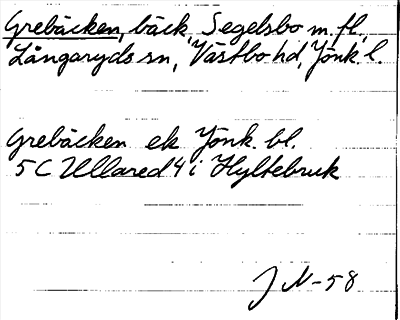 Grebäcken, bäck, Segelsbo m. fl.,
Långaryds sn, Västbo hd, Jönk. l.
Grebäcken ek Jönk. bl.
5C Ullared 4i Hyltebruk
JN-58